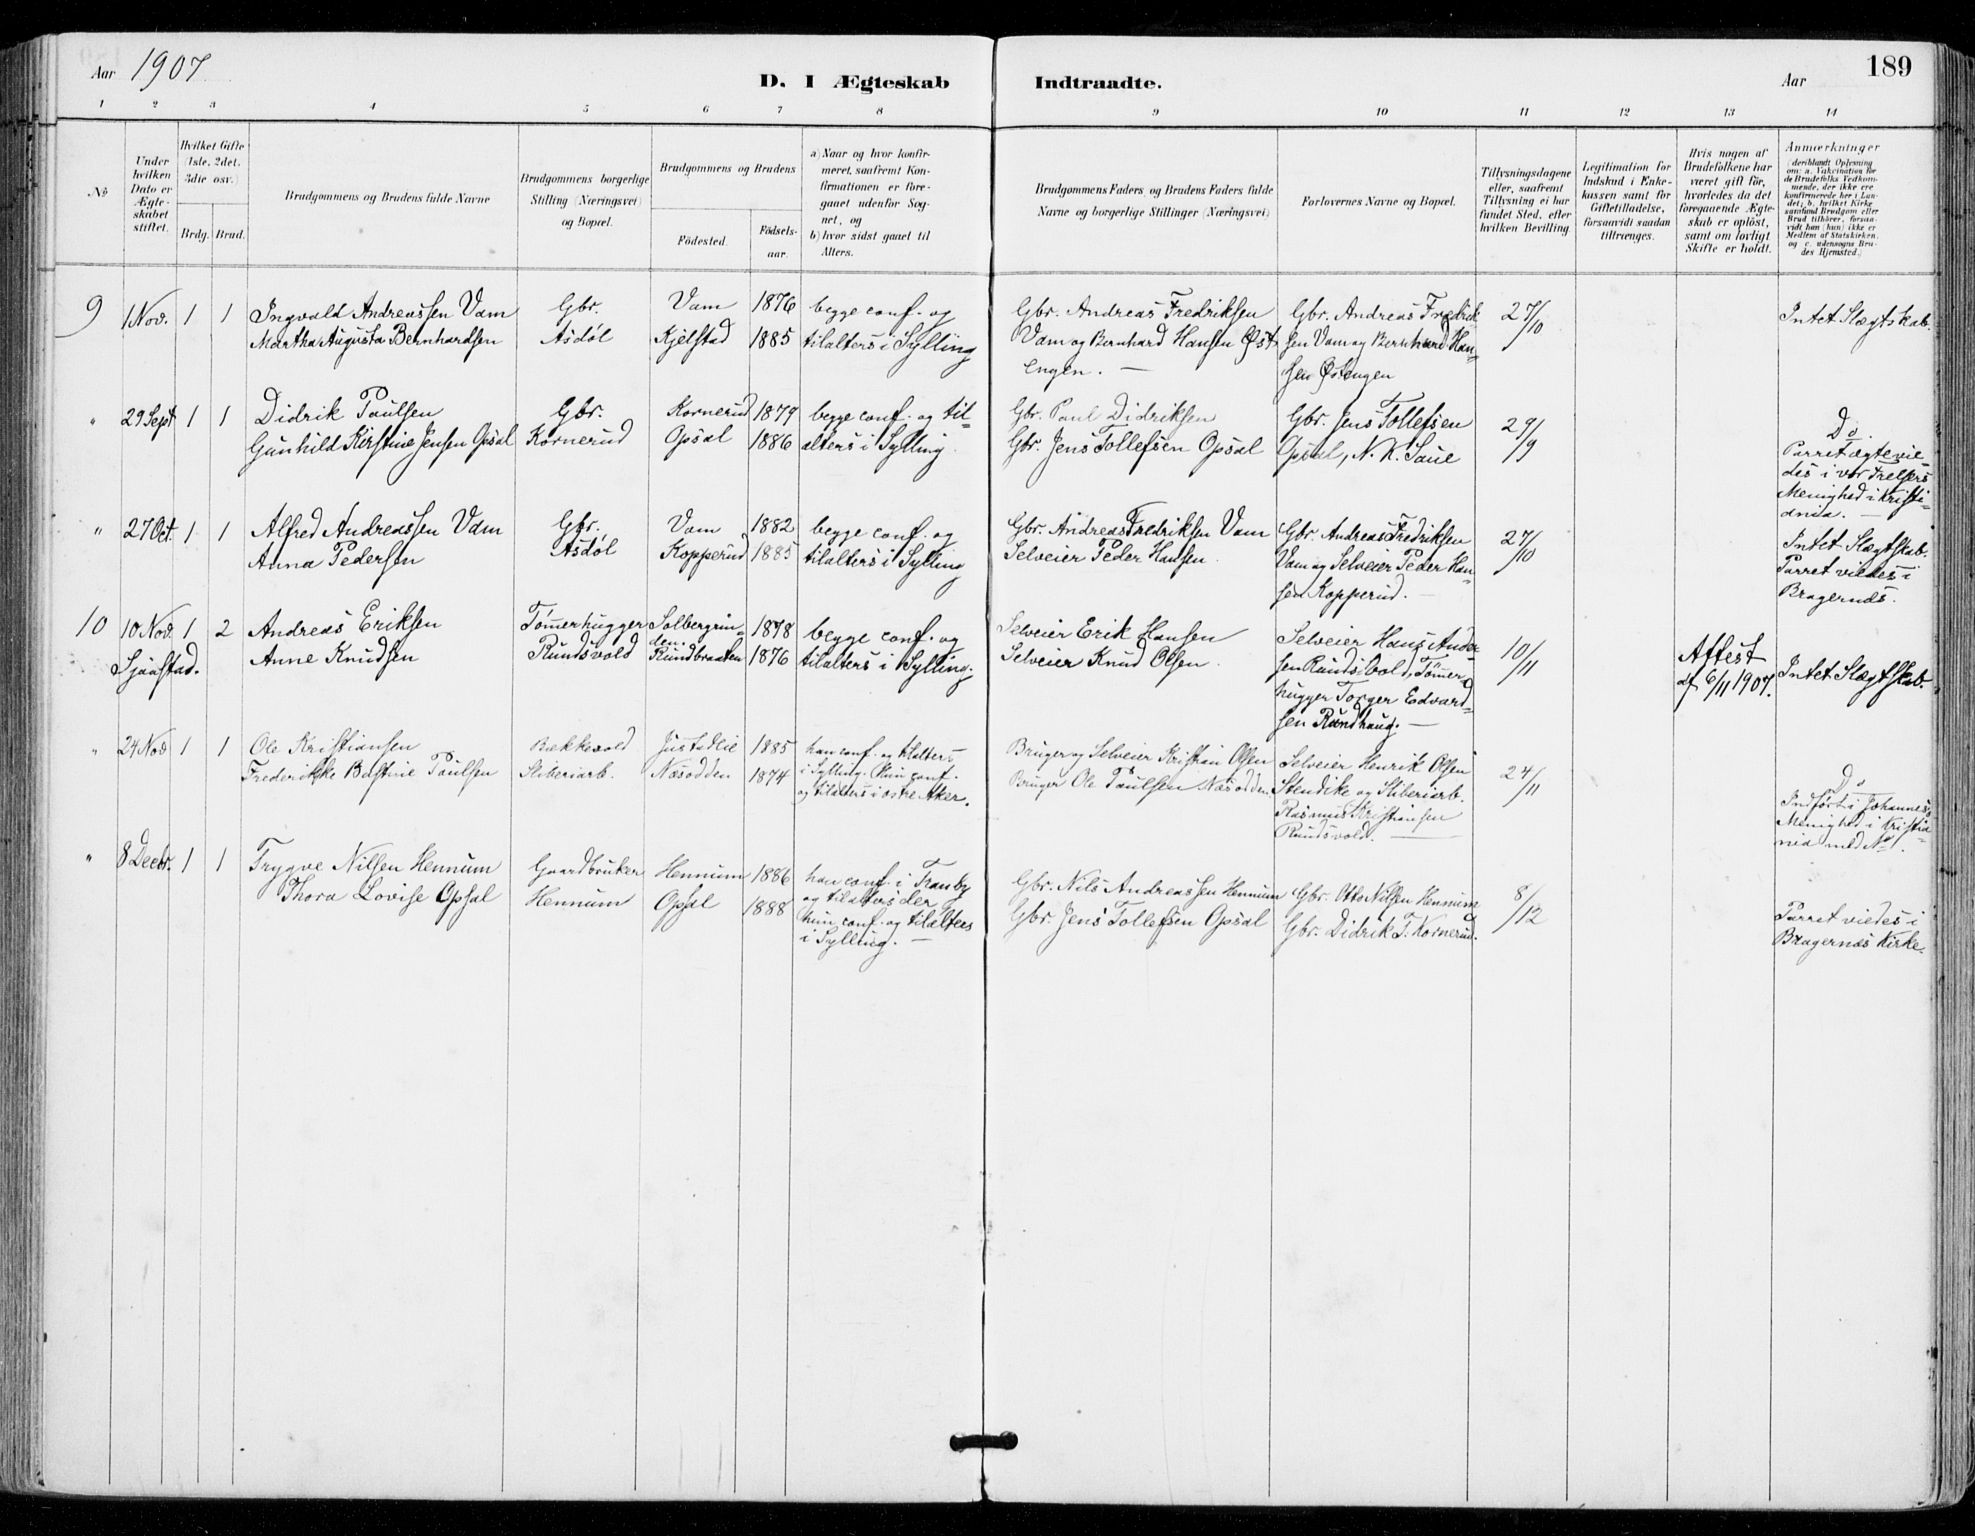 Aar 1907
D. I Ægteskab Indtraadte.
Aar 189
1 2 3 4 5 6 7 8 9 10 11 12 13 14
No
Under hvilken Dato er Ægteskabet stiftet.
Hvilket Gifte (1ste, 2det, 3die osv.)
Brdg. Brud.
Brudgommens og Brudens fulde Navne
Brudgommens borgerlige Stilling (Næringsvei) og Bopæl.
Brudgommens og Brudens
Födested.
Födsels-aar.
a) Naar og hvor konfirmeret, saafremt Konfirmationen er foregaaet udenfor Sognet, og
b) hvor sidst gaaet til Alters.
Brudgommens Faders og Brudens Faders fulde Navne og borgerlige Stillinger (Næringsvei)
Forlovernes Navne og Bopæl.
Tillysningsdagene eller, saafremt Tillysning ei har fundet Sted, efter hvilken Bevilling.
Legitimation for Indskud i Enkekassen samt for Giftetilladelse, forsaavidt saadan tiltrænges.
Hvis nogen af Brudefolkene har været gift før, hvorledes da det foregaaende Ægteskab er opløst, samt om lovligt Skifte er holdt.
Anmerkninger
(deriblandt Oplysning om: a. Vakcination for de Brudefolks Vedkommende, der ikke ere konfirmerede her i Landet; b. hvilket Kirkesamfund Brudgom eller Brud tilhører, forsaavidt han (hun) ikke er Medlem af Statskirken, og c. udensogns Brudes Hjemsted.)
9 1 Nov. 1 1
Ingvald Andreassen Vam
Martha Augusta Bernhardsen
Gbr.
Asdøl
Vam 1876
Kjelstad 1885
begge conf. og
tilalters i Sylling
Gbr. Andreas Fredriksen
Vam og Bernhard Hansen Øst
engen. —
Gbr. Andreas Fredrik
sen Vam og Bernhard Han-
sen Østengen
27/10
Intet Slægtskab.
" 29 Sept 1 1
Didrik Paulsen
Gunhild Kirstine Jensen Opsal
Gbr.
Kornerud
Kornerud 1879
Opsal 1886
begge conf. og til-
alters i Sylling.
Gbr. Paul Didriksen
Gbr. Jens Tollefsen Opsal
Gbr. Jens Tollefsen
Opsal, N. K. Saue
29/9
Do.
Parret ægtevie-
des i vor Frelsers
Menighed i Kristi-
ania. —
" 27 Oct. 1 1
Alfred Andreassen Vam
Anna Pedersen
Gbr.
Asdøl
Vam 1882
Kopperud 1885
begge conf. og
tilalters i Sylling
Gbr. Andreas Fredriksen Vam
Selveier Peder Hansen.
Gbr. Andreas Fredriksen
Vam og Selveier Peder Han-
sen Kopperud. —
27/10
Intet Slægtskab.
Parret viedes i
Bragernæs.
10 10 Nov. 1 2
Sjaastad.
Andreas Eriksen
Anne Knudsen
Tømmerhugger
Rundsvold
Solbergrin-
den 1878
Rundbraaten 1876
begge conf. og
tilalters i Sylling.
Selveier Erik Hansen
Selveier Knud Olsen.
Selveier Hans Ander-
sen Rundsvold, Tømmer-
hugger Torger Edvard-
sen Rundhaug. —
10/11
Attest
af 6/11 1907.
Intet Slægtskab.
" 24 Nov 1 1
Ole Kristiansen
Frederikke Bastine Paulsen
Bækkevold
Sliberiarb.
Justadlie 1885
Næsodden 1874
han conf. og tilalters
i Sylling. Hun conf.
og tilalters i østre Aker.
Bruger og Selveier Kristian Olsen
Bruger Ole Paulsen Næsodden.
Selveier Henrik Olsen
Stendike og Sliberiarb.
Rasmus Kristiansen
Rundsvold. —
24/11
Do
Indført i Johannes
Menighed i Kristia-
nia med No.
" 8 Decbr. 1 1
Trygve Nilsen Hennum
Thora Lovise Opsal
Gaardbruker
Hennum
Hennum 1886
Opsal 1888
han conf. i Tranby
og tilalters der
hun conf. og tilalters
i Sylling. —
Gbr. Nils Andreassen Hennum
Gbr. Jens Tollefsen Opsal
Gbr. Otto Nilsen Hennum
Gbr. Didrik T. Kornerud.
8/12
Parret viedes i
Bragernæs Kirke.